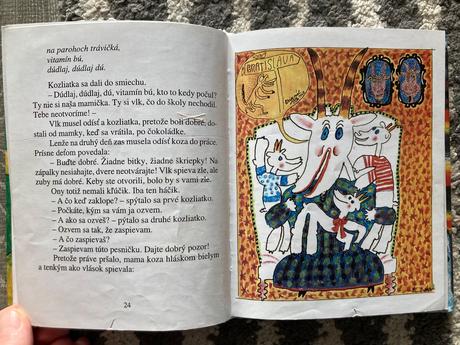 na parohoch trávičká,
vitamín bú,
dúdlaj, dúdlaj dú.
Kozliatka sa dali do smiechu.
– Dúdlaj, dúdlaj, dú, vitamín bú, kto to kedy počul?
Ty nie si naša mamička. Ty si vlk, čo do školy nechodil.
Tebe neotvoríme! –
Vlk musel odísť a kozliatka, pretože boli dobré, do-
stali od mamky, keď sa vrátila, po čokoládke.
Lenže na druhý deň zas musela odísť koza do práce.
Prísne deťom povedala:
– Buďte dobré. Žiadne bitky, žiadne škriepky! Na
zápalky nesiahajte, dvere neotvárajte! Vlk spieva zle, ale
zuby má dobré. Keby ste otvorili, bolo by s vami zle.
Ony totiž nemali kľúčik. Iba ten háčik.
– A čo keď zaklope? – spýtalo sa prvé kozliatko.
– Počkáte, kým sa vám ja ozvem.
– A ako sa ozveš? – pýtalo sa druhé kozliatko.
– Ozvem sa tak, že zaspievam.
– A čo zaspievaš?
– Zaspievam túto pesničku. Dajte dobrý pozor!
Pretože práve pršalo, mama koza hláskom bielym
a tenkým ako vlások spievala:
24
BRATISLAVA